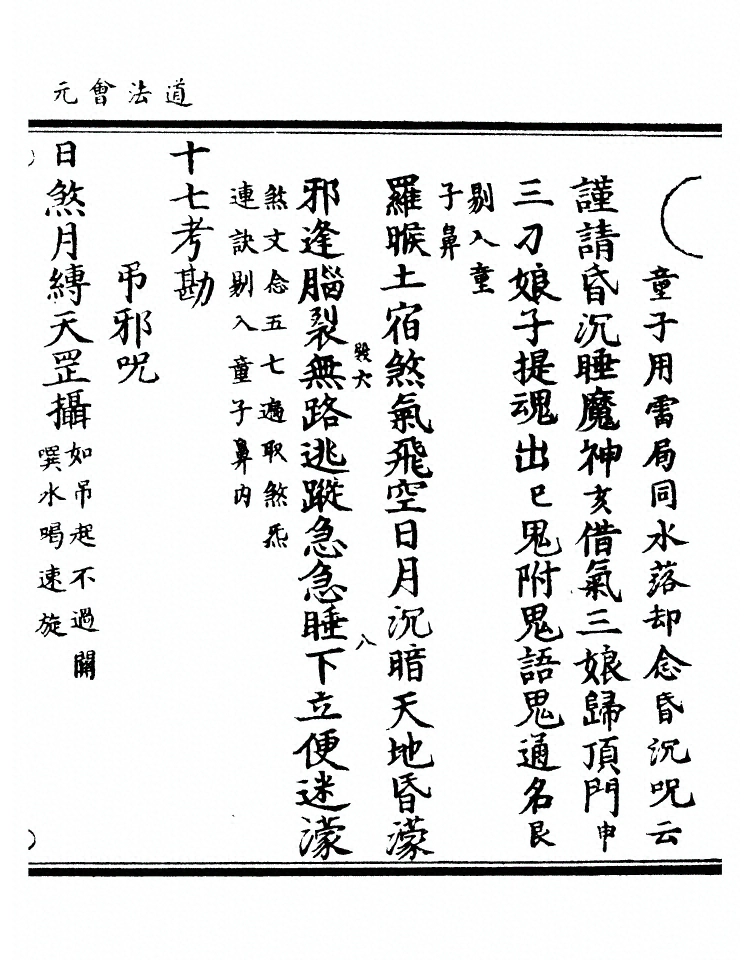 道法會元
童子用雷局同水落却念昏沉呪云
謹請昏沉睡魔神亥借氣三娘歸頂門申
三刀娘子提魂出巳鬼附鬼語鬼通名艮
剔入童
子鼻
羅睺土宿煞氣飛空日月沉暗天地昏濛
八
邪逢腦裂無路逃蹤急急睡下立便迷濛
煞文念五七遍取煞炁
連訣剔入童子鼻内
十七考勘
吊邪呪
日煞月縛天罡攝
如吊起不過關
噀水喝速旋